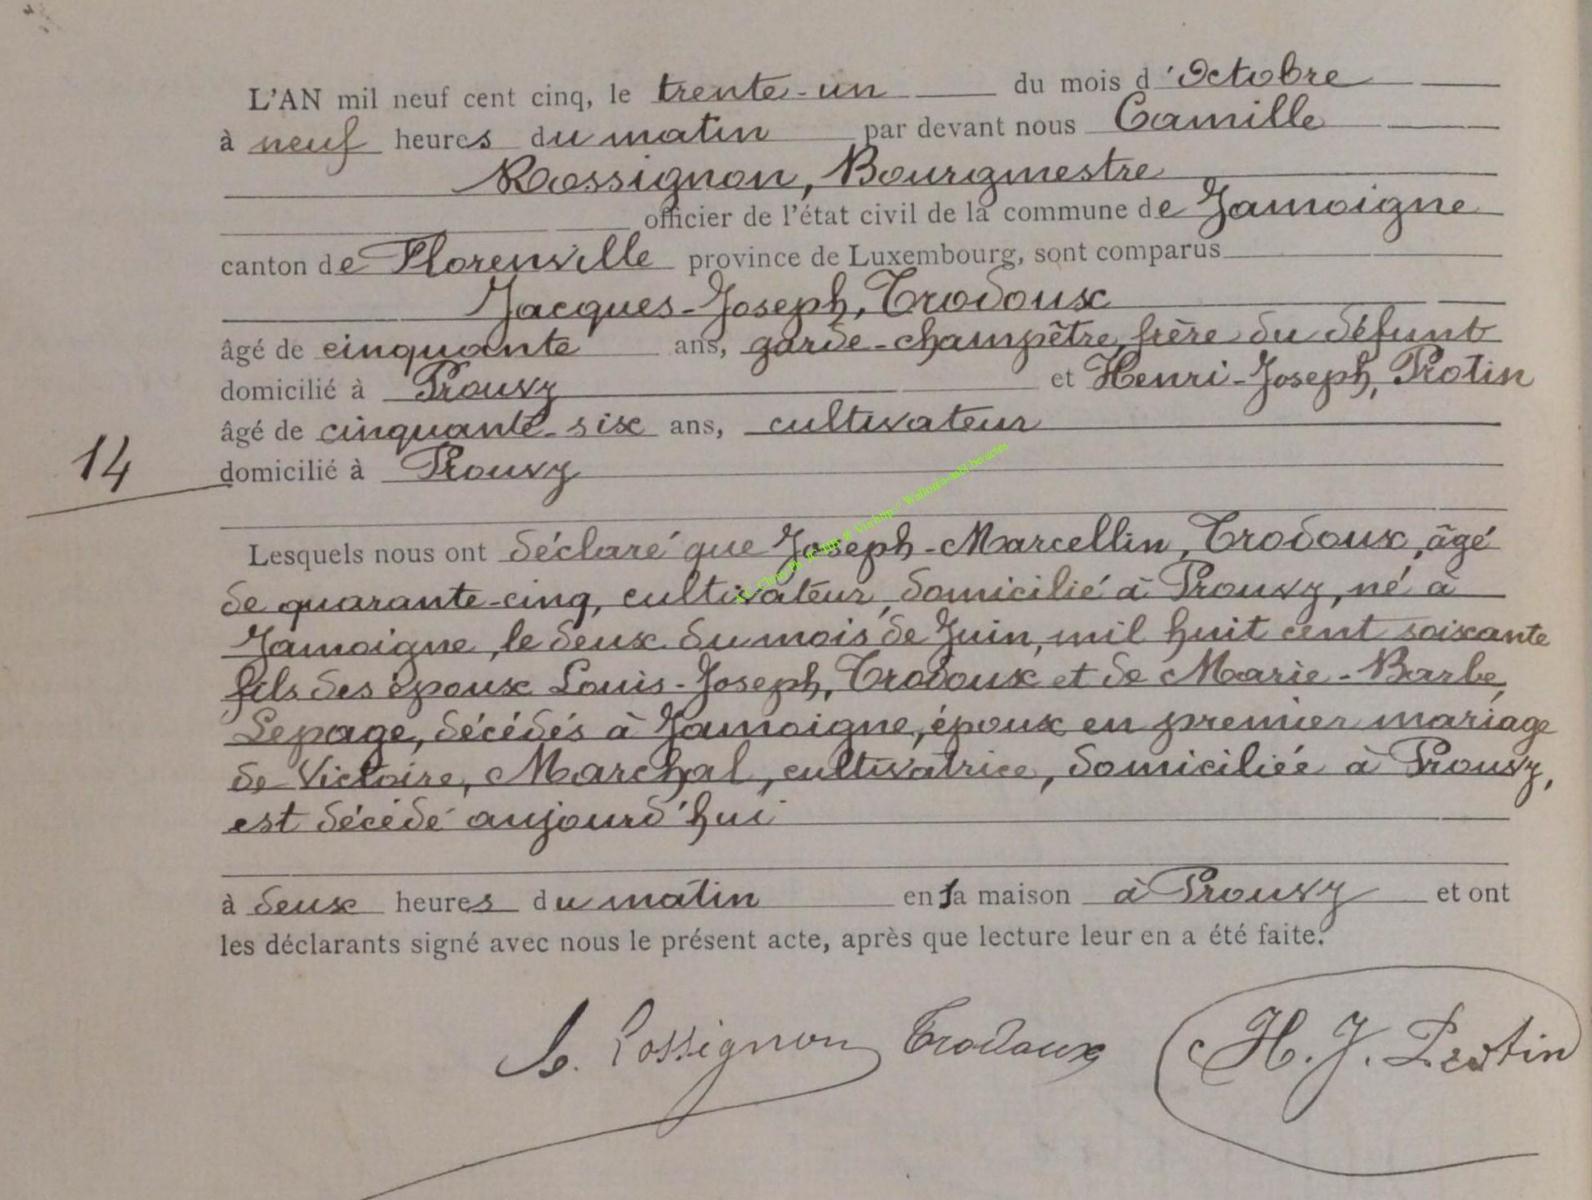 L'AN mil neuf cent cinq, le trente-un du mois d'Octobre
à neuf heures du matin par devant nous Camille
Rossignon, Bourgmestre
officier de l'état civil de la commune de Jamoigne
canton de Florenville province de Luxembourg, sont comparus
Jacques-Joseph, Trodoux
âgé de cinquante ans, garde-champêtre, frère du défunt
domicilié à Prouvy et Henri-Joseph, Protin
âgé de cinquante-six ans, cultivateur
14
domicilié à Prouvy
Lesquels nous ont déclaré que Joseph-Marcellin, Trodoux, âgé
de quarante-cinq, cultivateur, domicilié à Prouvy, né à
Jamoigne, le deux du mois de Juin, mil huit cent soixante
fils des époux Louis-Joseph, Trodoux et de Marie-Barbe,
Lepage, décédés à Jamoigne, époux en premier mariage
de Victoire, Marchal, cultivatrice, domiciliée à Prouvy,
est décédé aujourd'hui
à deux heures du matin en la maison à Prouvy et ont
les déclarants signé avec nous le présent acte, après que lecture leur en a été faite.
C. Rossignon Trodoux H. J. Protin